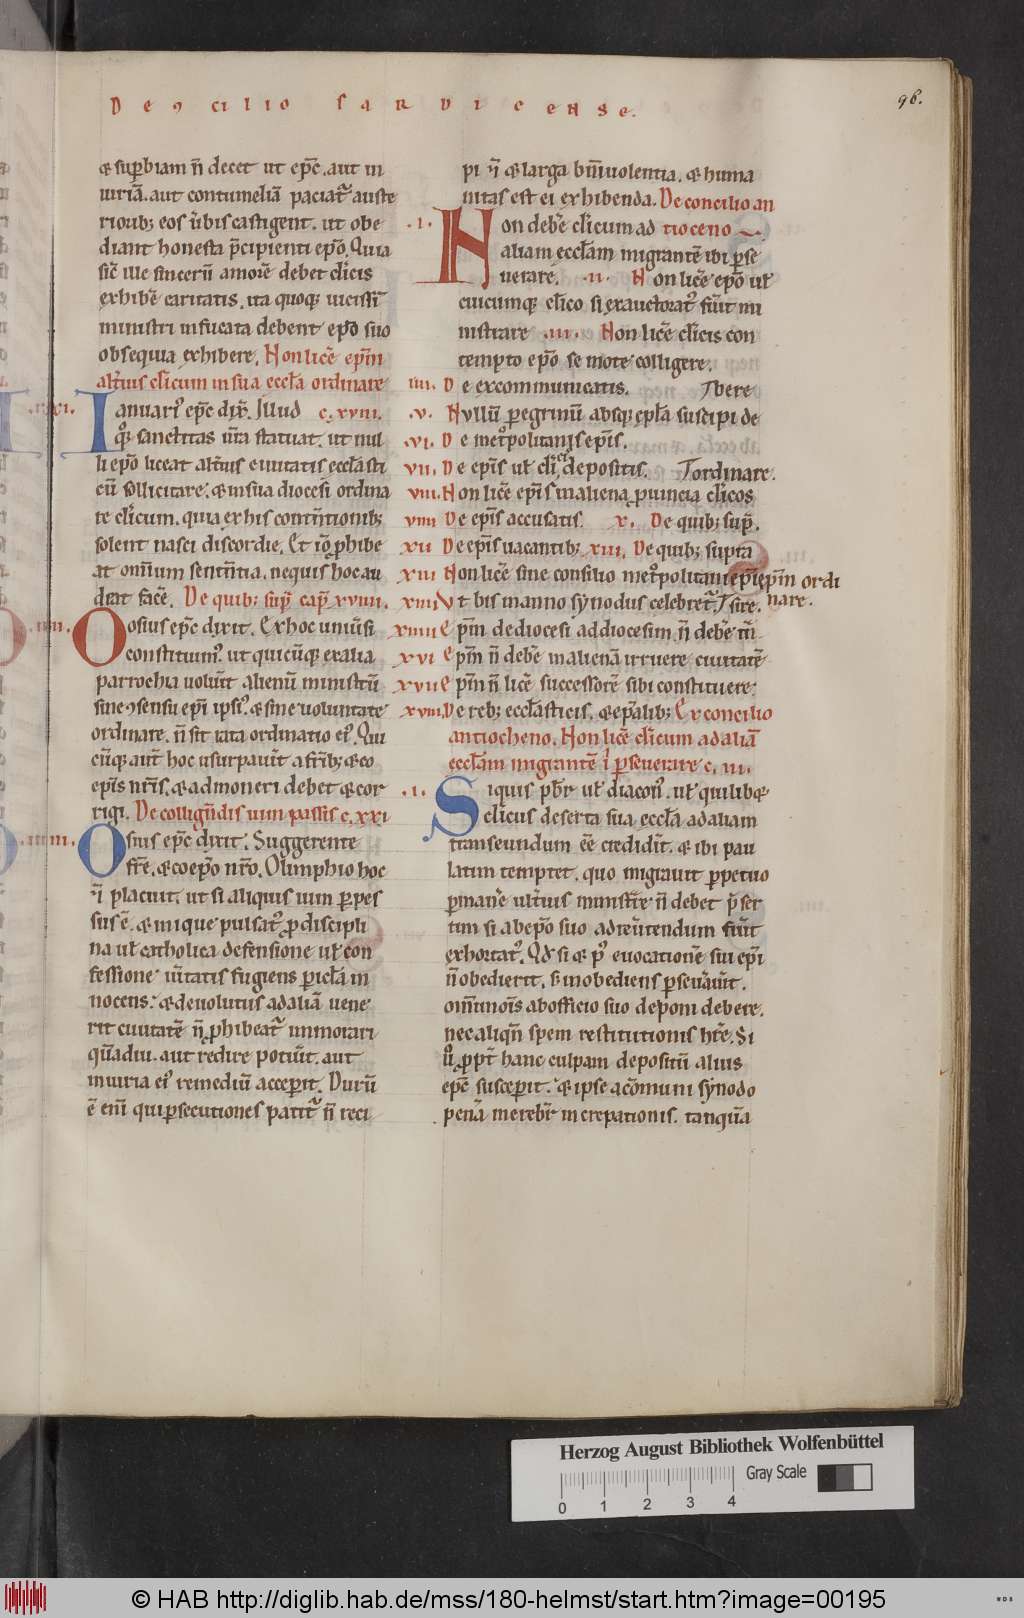 De ꝯcilio sardicense.
96.
⁊ suꝑbiam n̄ decet ut ep̄c. aut in
iuriā. aut contumeliā paciat̃ auste
riorib; eos ũbis castigent. ut obe
diant honesta p̄cipienti ep̄o. Quia
sic̄ ille sincerū amorē debet cl̄icis
exhibē caritatis. ita quoq; uicissī
ministri infucata debent ep̄o suo
obsequia exhibere. Non licē ep̄m
alt̄ius cl̄icum in sua eccl̄a ordinare
Ianuari᷒ ep̄c dix̄. Illud c. xviii.
q᷒ꝫ sanctitas ur̄a statuat. ut nul
li ep̄o liceat alt̄ius ciuitatis eccl̄asti
cū sollicitare. ⁊ in sua diocesi ordina
re cl̄icum. quia ex his contn̄tionib;
solent nasci discordie. Et iō ꝓhibe
at omīum sentn̄tia. ne quis hoc au
deat facē. De quib; sup̄ cap̄ xviiii.
Oosius ep̄c dixit. Ex hoc uniūsi
constituim᷒. ut quicūq; ex alia
parrochia voluīt alienū ministrū
sine ꝯsensu ep̄i ipsi᷒. ⁊ sine uoluntate
ordinare. n̄ sit rata ordinatio ei᷒. Qui
cūq; aut̄ hoc usurpauīt a fr̄ib; ⁊ co
ep̄is nr̄is. ⁊ admoneri debet ⁊ cor
rigi. De collign̄dis uim passis c. xxi
Osius ep̄c dixit. Suggerente
fr̄e. ⁊ coep̄o nr̄o. Olimphio hoc
placuit. ut si aliquis uim ꝑpes
sus ē. ⁊ inique pulsat᷒ ꝓ discipli
na ul̄ catholica defensione ul̄ con
fessione ūitatis fugiens ꝑicl̄a in
nocens. ⁊ deuolutus ad aliā uene
rit ciuitatē n̄ ꝓhibeat᷒ immorari
qūadiu. aut redire potūit. aut
iniuria ei᷒ remediū acceꝑit. Durū
ē enī qui ꝑsecutiones patit᷒ n̄ reci
pi n̄ ⁊ larga biūolentia. ⁊ huma
nitas est ei exhibenda. De concilio an
.i. Non debē cl̄icum ad tioceno
aliam eccl̄am migrantē ibi ꝑse
uerare. .ii. Non licē ep̄o ul̄
cuicumq; cl̄ico si exauctorat᷒ fūit mi
nistrare .iii. Non licē cl̄icis con
tempto ep̄o semote colligere.
iiii. De excommunicatis. bere
.v. Nullū ꝑegrinū absq; epl̄a suscipi de
.vi. De met᷒politanis ep̄is.
vii. De ep̄is ul̄ cl̄icis depositis. ordinare.
viii. Non licē ep̄is in aliena ꝓuincia cl̄icos
viiii De ep̄is accusatis. x. De quib; sup̄.
xii De ep̄is uacantib; xiii. De quib; supra
xiii Non licē sine consilio met᷒politani ep̄i ep̄m ordi
xiiii Ut bis in anno synodus celebret᷒ nare.
xiiii Ep̄m de diocesi ad diocesim n̄ debē
xvi Ep̄m n̄ debē in alienā irruere ciuitatē
xvii Ep̄m n̄ licē successorē sibi constituere.
xviii. De reb; eccl̄asticis. ⁊ ep̄alib; Ex concilio
antiocheno. Non licē cl̄icum ad aliā
eccl̄am migrantē ī ꝑseuerare c. iii.
.i. Siquis pb̄r ul̄ diacon᷒. ul̄ quilibꝫ
cl̄icus deserta sua eccl̄a ad aliam
transeundum eē credidīt. ⁊ ibi pau
latim temptet. quo migrauit ꝑpetuo
ꝑmanē ult̄ius ministrē n̄ debet p̄ser
tim si ab ep̄o suo ad reūtendum fūit
exhortat᷒. Qd̄ si ⁊ p᷒ euocationē sui ep̄i
n̄ obedierit. s; inobediens ꝑseūauīt.
omīmois ab officio suo deponi debere.
nec aliqn̄ spem restitutionis hr̄e. Si
ū ꝓpt̄ hanc culpam depositū alius
ep̄c susceꝑit. ⁊ ipse a cōmuni synodo
penā merebit᷒ increpationis. tanqūa
Herzog August Bibliothek Wolfenbüttel
Gray Scale
0 1 2 3 4
© HAB http://diglib.hab.de/mss/180-helmst/start.htm?image=00195